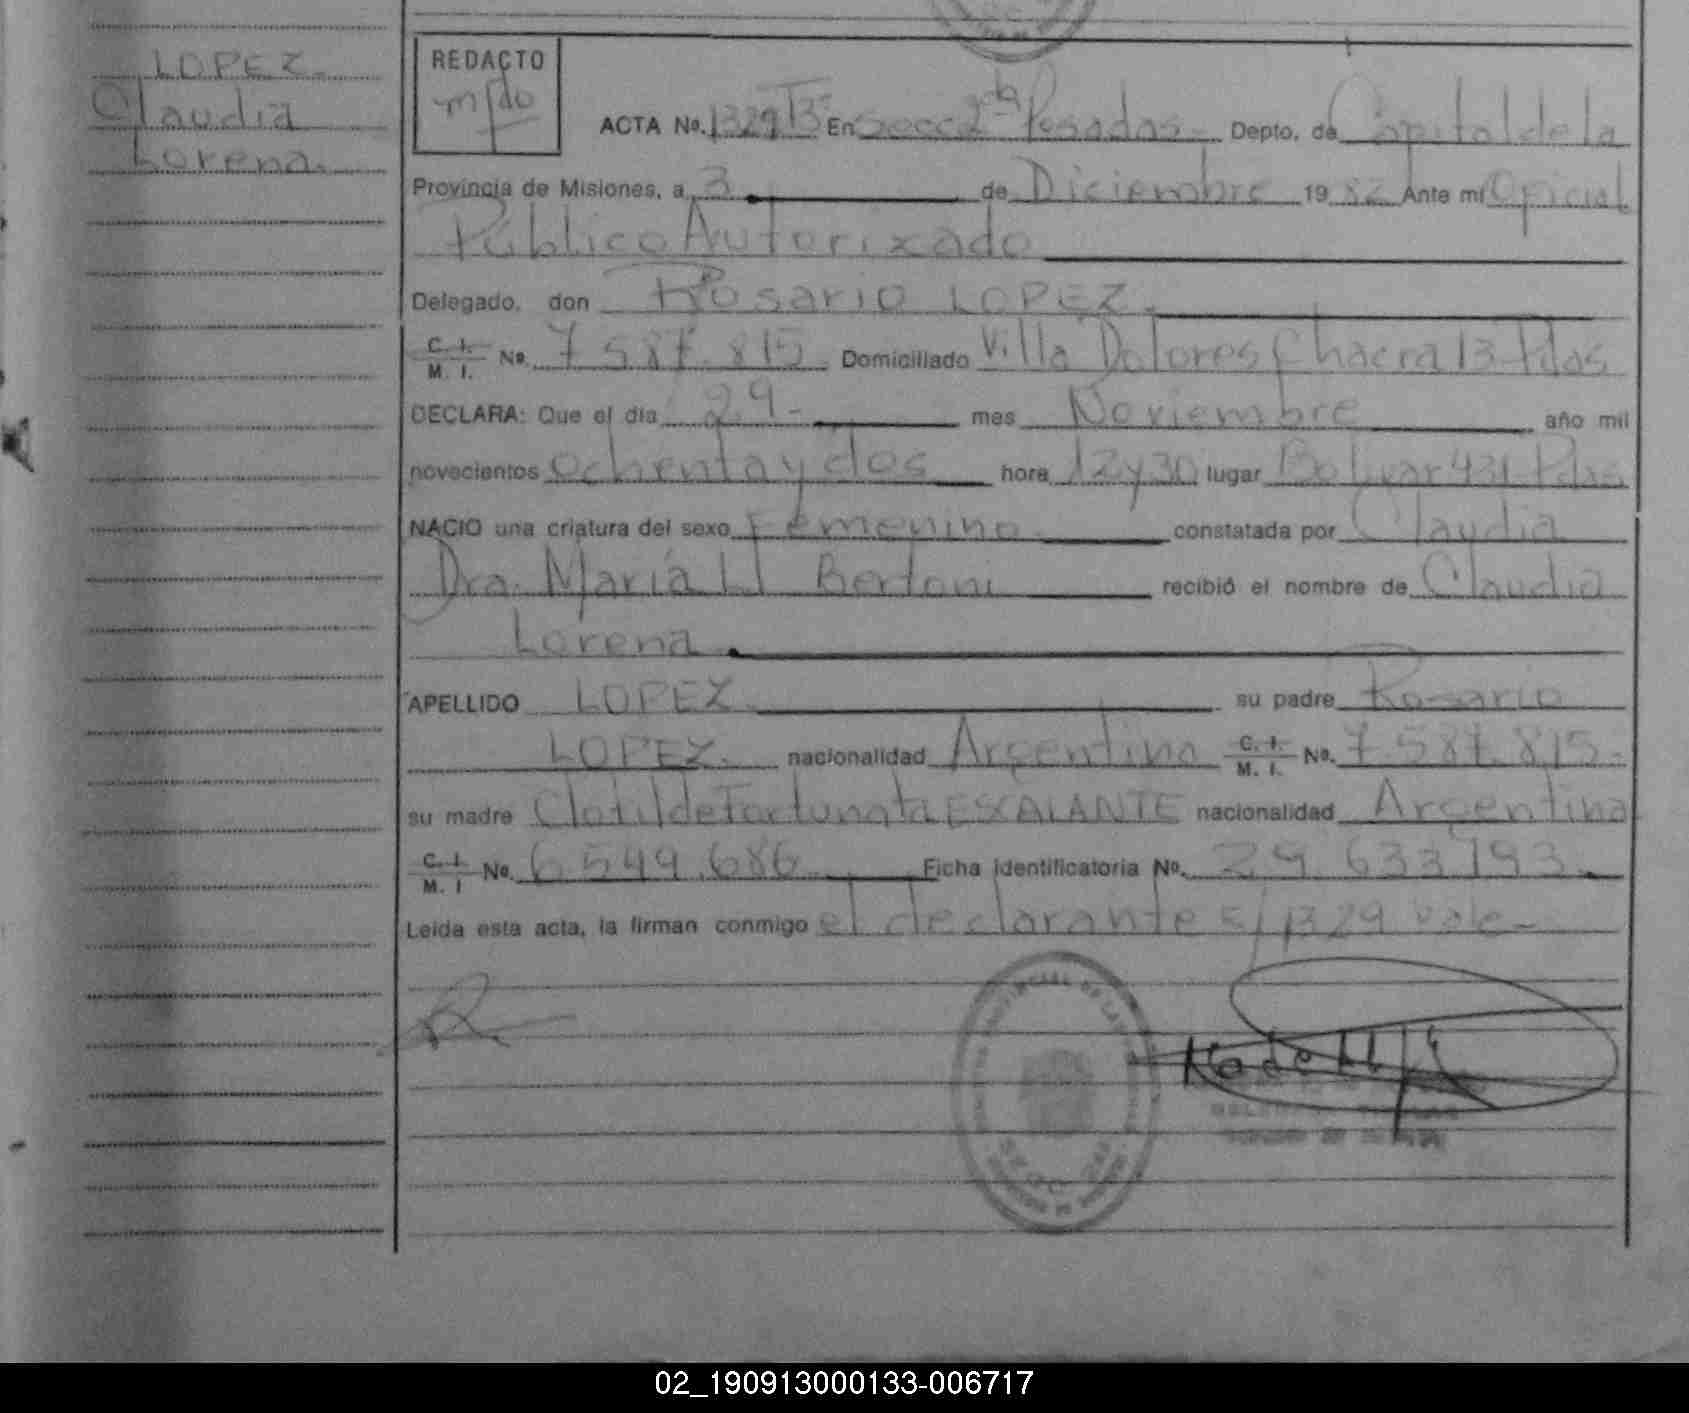 LOPEZ.
Claudia
Lorena.
REDACTO
ACTA No. 1329 T3º En Secc 2da Posadas. Depto. de Capital de la
Provincia de Misiones, a 3 de Diciembre 1982 Ante mí Oficial
Público Autorixado
Delegado, don Rosario LOPEZ.
C. I. / M. I. No. 7.587.815. Domiciliado Villa Dolores Chacra 13-Pdas
DECLARA: Que el día 29- mes Noviembre año mil
novecientos ochenta y dos hora 12y30 lugar Bolivar 431-Pdas
NACIO una criatura del sexo Femenino constatada por Claudia
Dra. María Bertoni recibió el nombre de Claudia
Lorena
APELLIDO LOPEZ. su padre Rosario
LOPEZ. nacionalidad Argentina C. I. / M. I. No. 7.587.815.
su madre Clotilde Fortunata ESCALANTE nacionalidad Argentina
C. I. / M. I No. 6.549.686 Ficha Identificatoria No. 29.633.793.
Leída esta acta, la firman conmigo el declarante s/1329 vale-
SECC. 2da
02_190913000133-006717